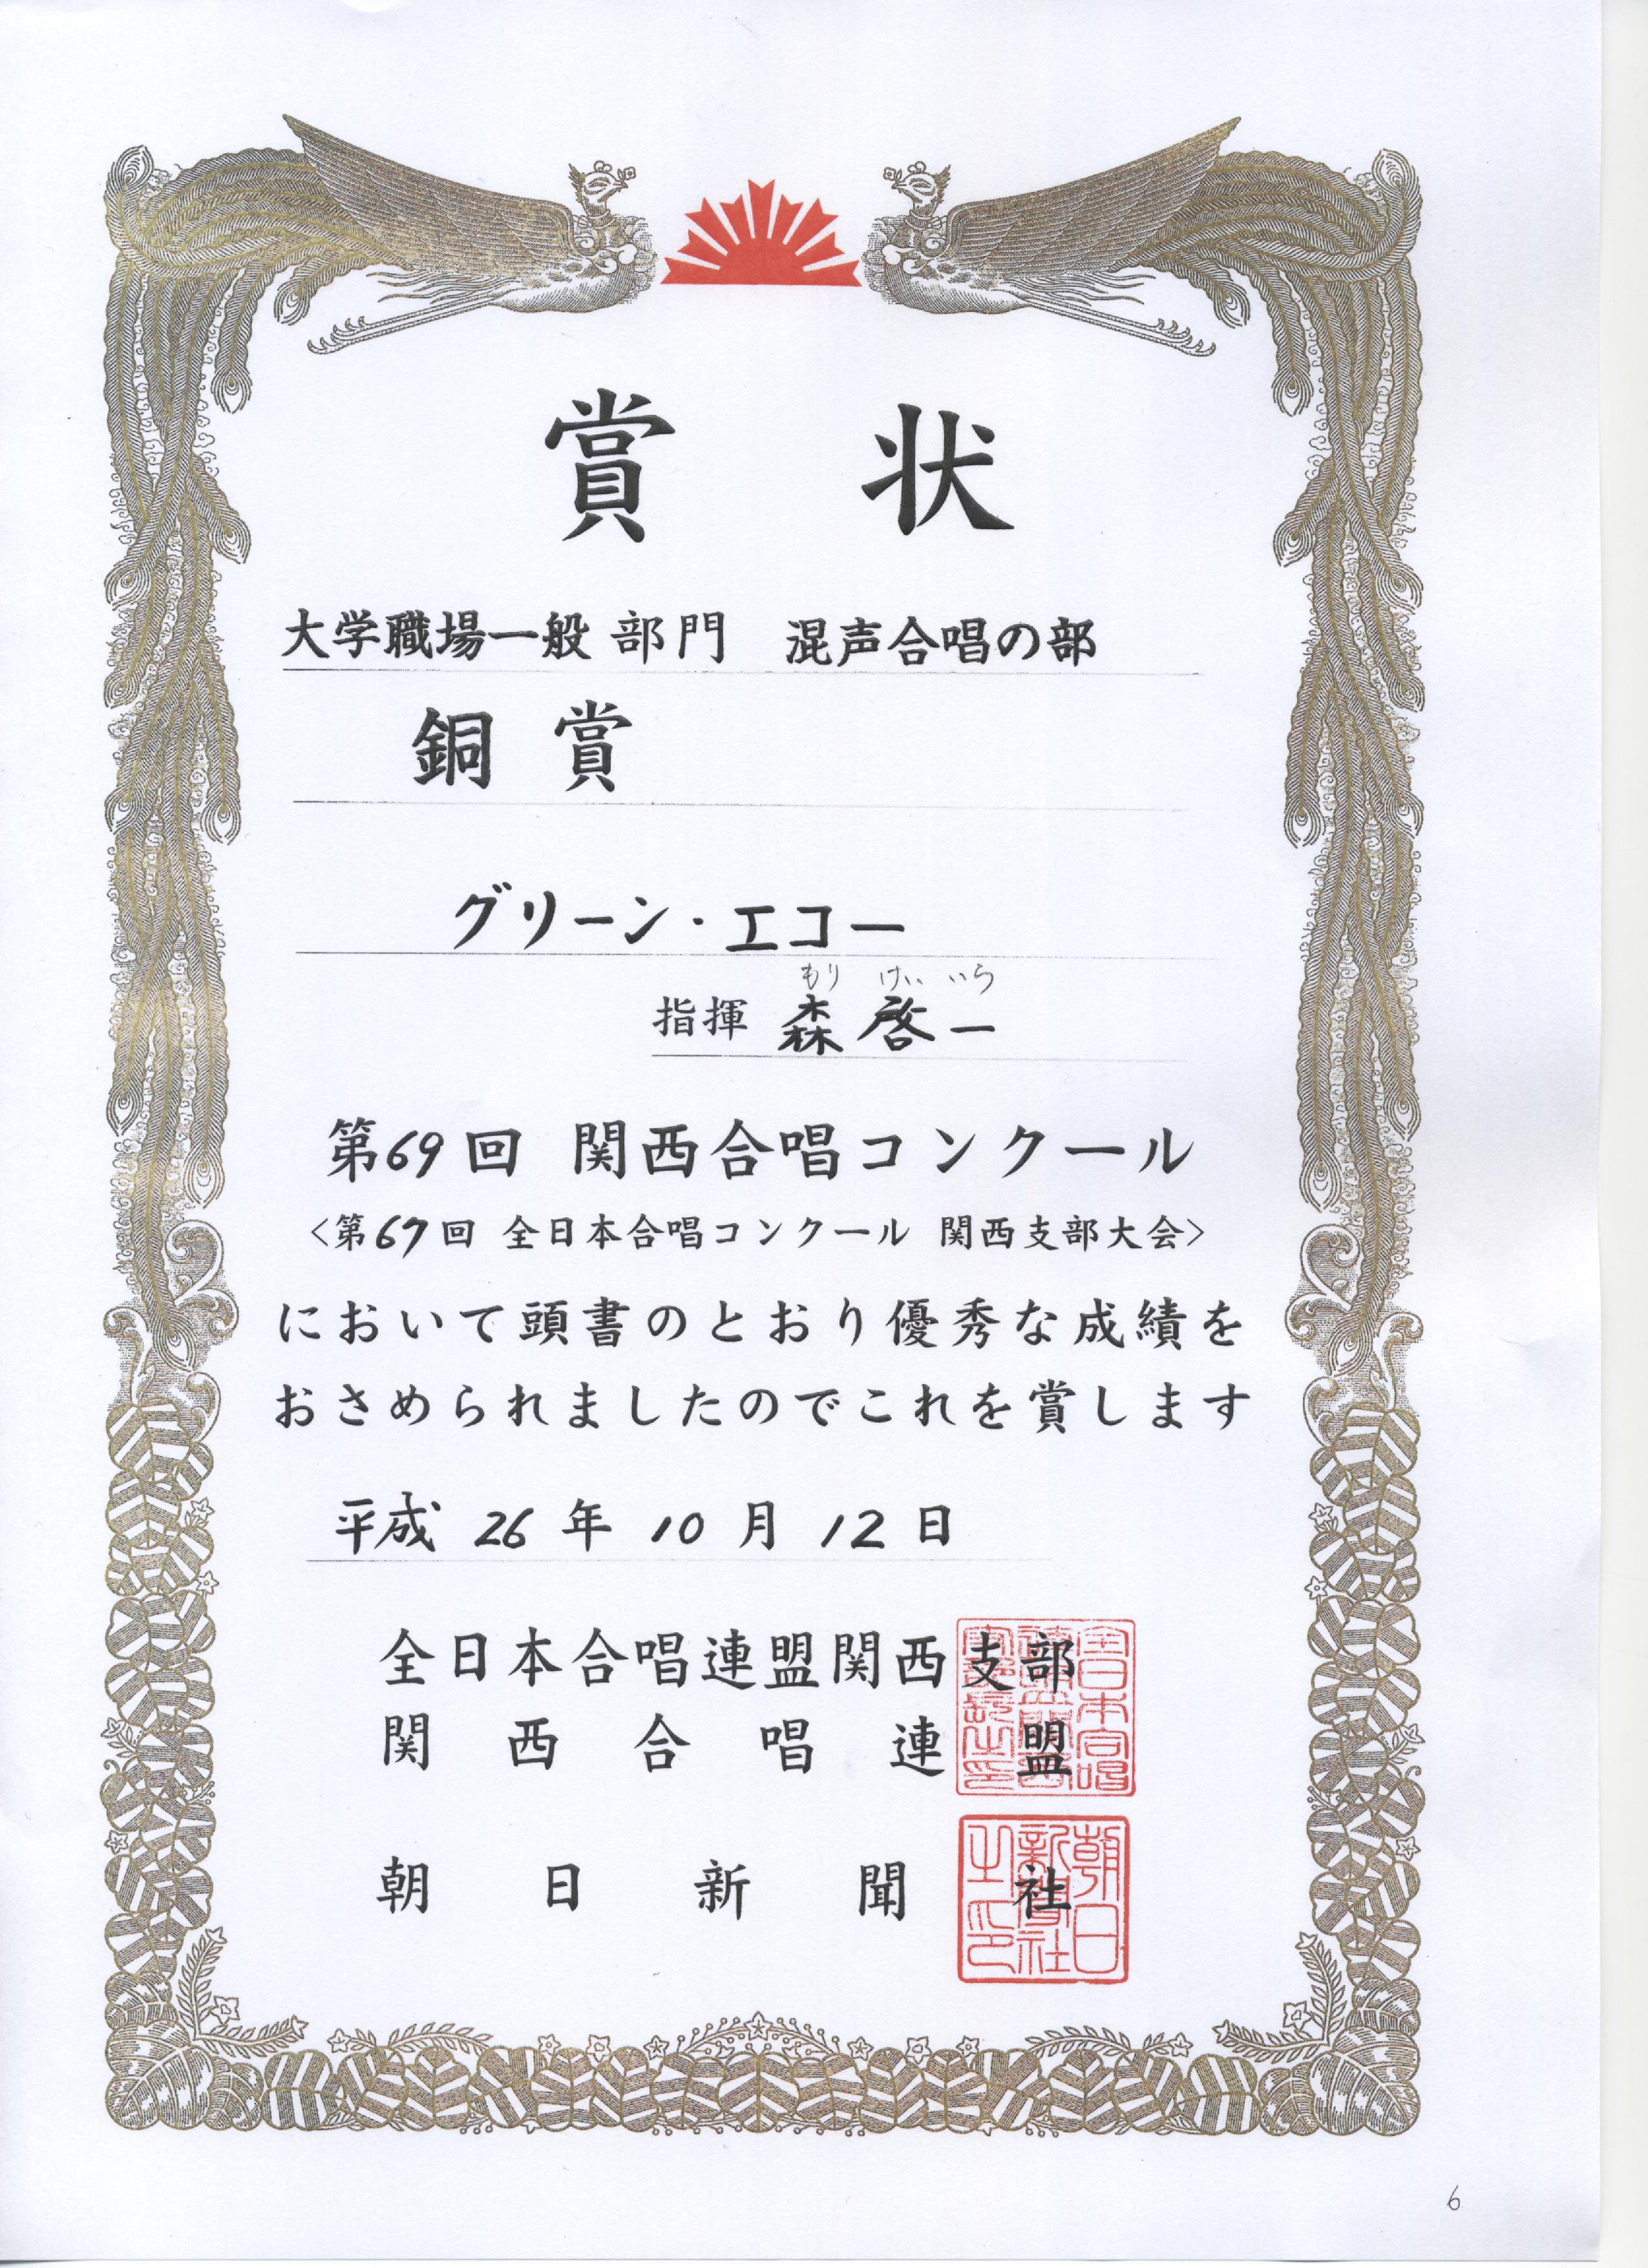 賞状
大学職場一般 部門 混声合唱の部
銅賞
グリーン・エコー
もり けい いち
指揮 森 啓一
第69回 関西合唱コンクール
<第67回 全日本合唱コンクール 関西支部大会>
において頭書のとおり優秀な成績を
おさめられましたのでこれを賞します
平成 26 年 10 月 12 日
全日本合唱連盟関西支部
関西合唱連盟
朝日新聞社
朝日新聞社之印
6